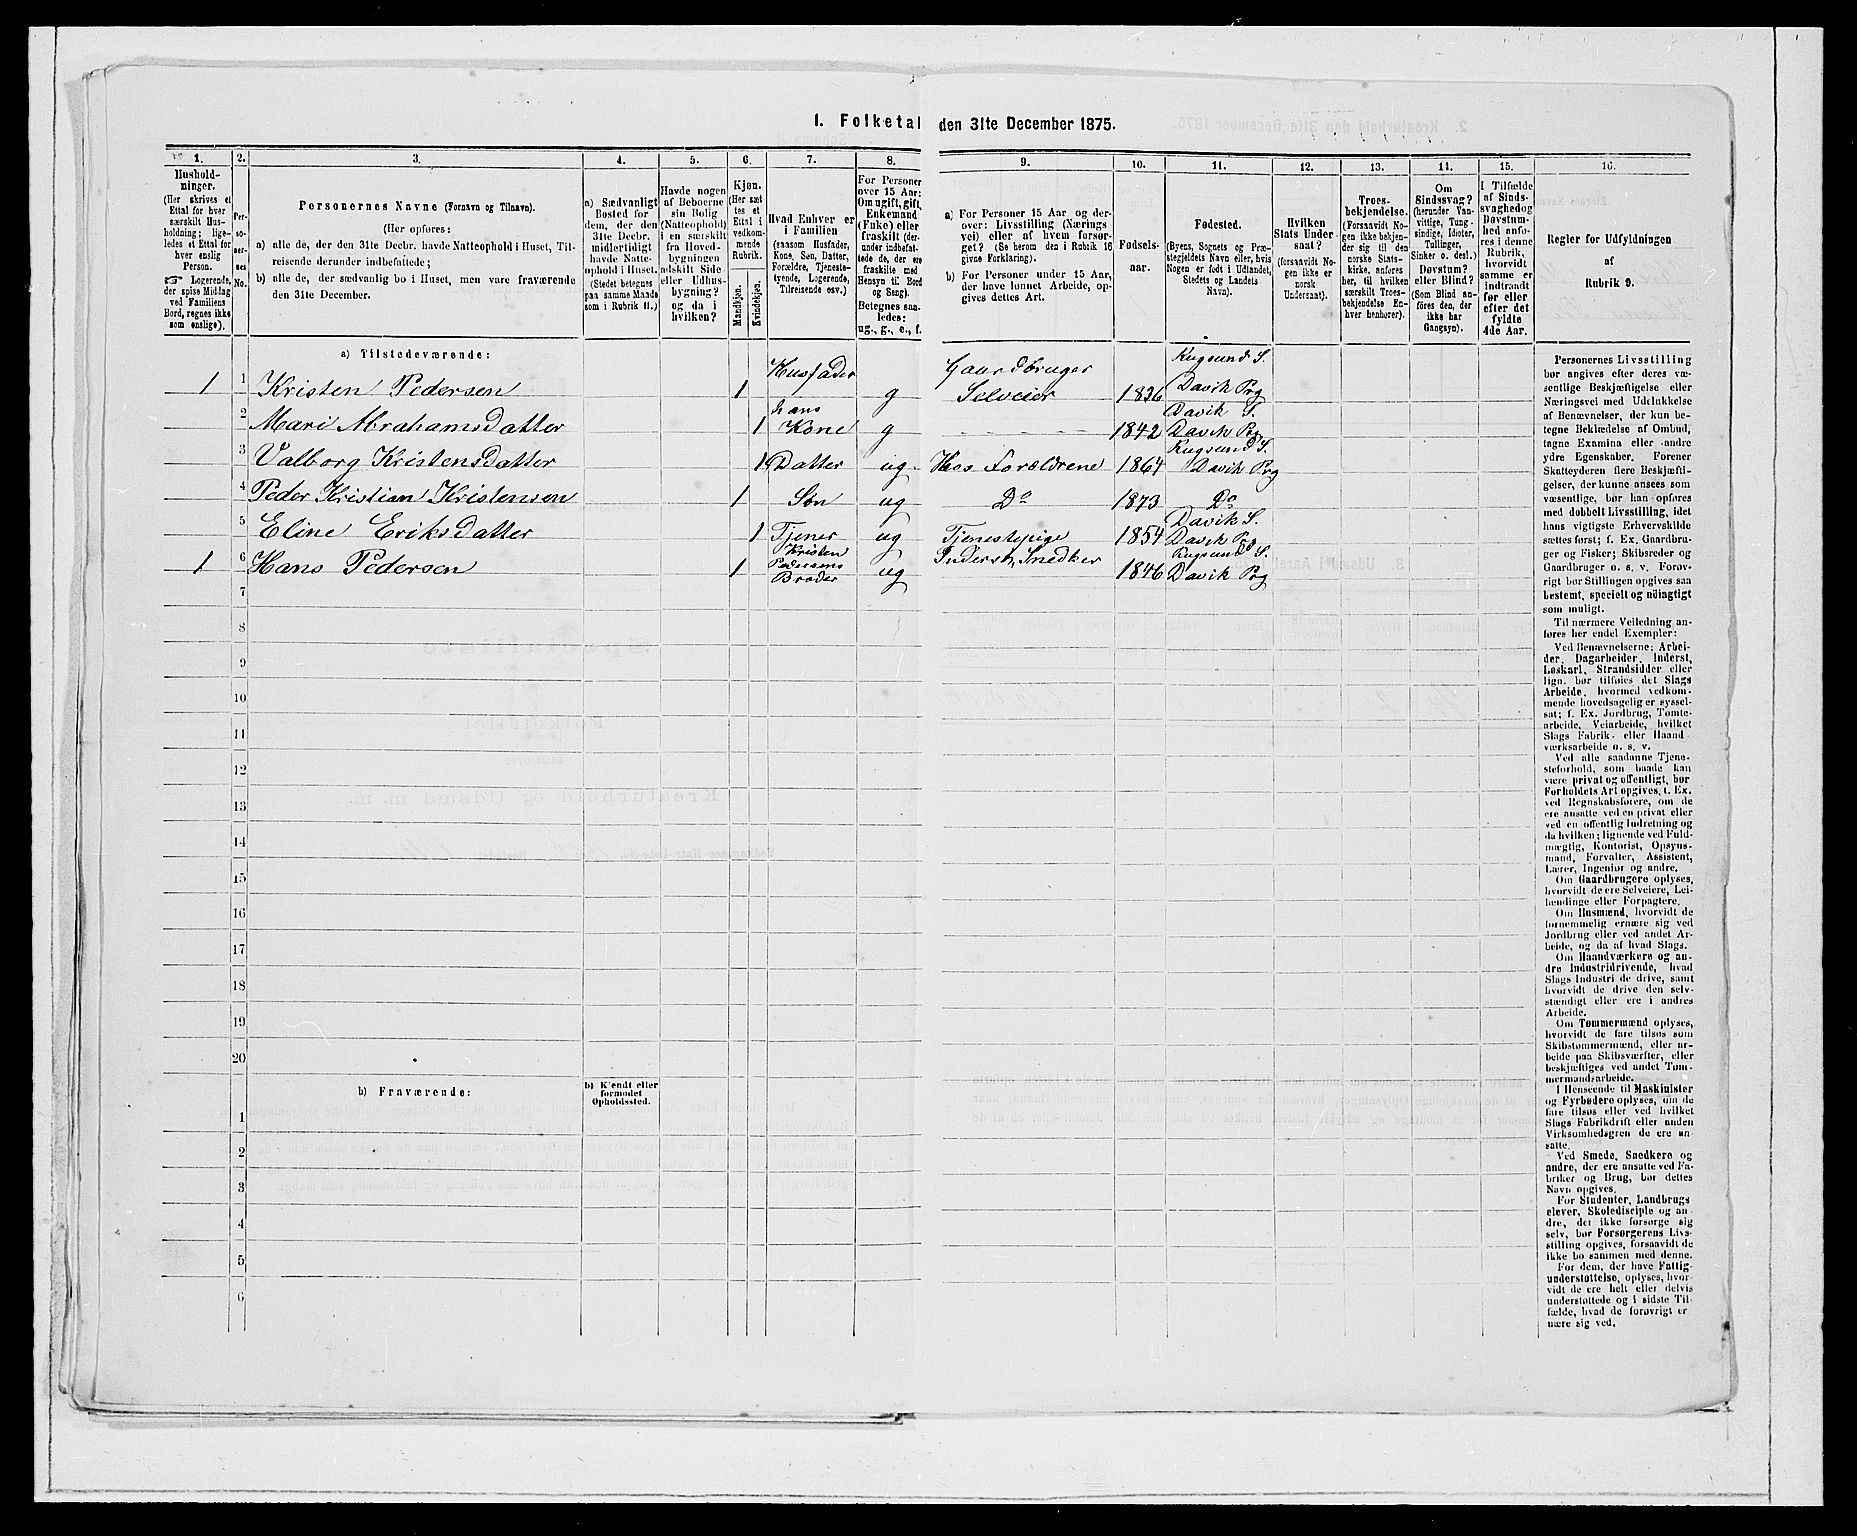 1. Folketal den 31te December 1875.
1. 2. 3. 4. 5. 6. 7. 8. 9. 10. 11. 12. 13. 14. 15. 16.
Hushold-
ninger.
(Her skrives et
Ettal for hver
særskilt Hus-
holdning; lige-
ledes et Ettal for
hver enslig
Person.
☞ Logerende,
der spise Middag
ved Familiens
Bord, regnes ikke
som enslige).
Per-
so-
ner-
nes
No.
Personernes Navne (Fornavn og Tilnavn).
(Her opføres:
a) alle de, der den 31te Decbr. havde Natteophold i Huset, Til-
reisende derunder indbefattede;
b) alle de, der sædvanlig bo i Huset, men vare fraværende
den 31te December.
a) Sædvanligt
Bosted for
dem, der den
31te Decbr.
midlertidigt
havde Natte-
ophold i Huset.
(Stedet betegnes
paa samme Maade
som i Rubrik 11.)
Havde nogen
af Beboerne
sin Bolig
(Natteophold)
i en særskilt
fra Hoved-
bygningen
adskilt Side-
eller Udhus-
bygning?
og da i
hvilken?
Kjøn.
(Her sæt-
tes et
Ettal i
vedkom-
mende
Rubrik.
Mandkjøn.
Kvindekjøn.
Hvad Enhver er
i Familien
(saasom Husfader,
Kone, Søn, Datter,
Forældre, Tjeneste-
tyende, Logerende,
Tilreisende osv.)
For Personer
over 15 Aar:
Om ugift, gift,
Enkemand
(Enke) eller
fraskilt (der-
under indbefat-
tede de, der ere
fraskilte med
Hensyn til Bord
og Seng).
Betegnes saa-
ledes:
ug., g., e., f.
a) For Personer 15 Aar og der-
over: Livsstilling (Nærings-
vei) eller af hvem forsør-
get? (Se herom den i Rubrik 16
givne Forklaring).
b) For Personer under 15 Aar,
der have lønnet Arbeide, op-
gives dettes Art.
Fødsels-
aar.
Fødested.
(Byens, Sognets og Præ-
stegjeldets Navn eller, hvis
Nogen er født i Udlandet,
Stedets og Landets
Navn).
Hvilken
Stats Under-
saat?
(forsaavidt No-
gen ikke er
norsk
Undersaat).
Troes-
bekjendelse.
(Forsaavidt No-
gen ikke bekjen-
der sig til den
norske Stats-
kirke, anføres
her, til hvilken
særskilt Troes-
bekjendelse En-
hver henhører).
Om
Sindssvag?
(herunder Van-
vittige, Tung-
sindige, Idioter,
Tullinger,
Sinker o. desl.)
Døvstum?
eller Blind?
(Som Blind an-
føres den, der
ikke har
Gangsyn).
I Tilfælde
af Sinds-
svaghed og
Døvstum-
hed anfø-
res i denne
Rubrik,
hvorvidt
samme er
indtraadt
før eller
efter det
fyldte
4de Aar.
Regler for Udfyldningen
af
Rubrik 9.
a) Tilstedeværende:
1 1 Kristen Pedersen 1 Husfader g Gaardbruger Selveier 1826 Rugsund S. Davik Prg
2 Mari Abrahamsdatter 1 hans Kone g - - - - 1842 Davik S. Davik Prg
3 Valborg Kristensdatter 1 Datter ug Hos Forældrene 1864 Rugsund S. Davik Prg
4 Peder Kristian Kristensen 1 Søn ug Do 1873 Do
5 Eline Eriksdatter 1 Tjener ug Tjenestepige 1854 Davik S. Davik Prg
1 6 Hans Pedersen 1 Kristen Pedersens Broder ug Inderst, Snedker 1846 Rugsund S. Davik Prg
7
8
9
10
11
12
13
14
15
16
17
18
19
20
b) Fraværende:
b) Kjendt eller
formodet
Opholdssted.
1
2
3
4
5
6
Personernes Livsstilling
bør angives efter deres væ-
sentlige Beskjæftigelse eller
Næringsvei med Udelukkelse
af Benævnelser, der kun be-
tegne Beklædelse af Ombud,
tagne Examina eller andre
ydre Egenskaber. Forener
Skatteyderen flere Beskjæfti-
gelser, der kunne ansees som
væsentlige, bør han opføres
med dobbelt Livsstilling, idet
hans vigtigste Erhvervskilde
sættes først; f. Ex. Gaardbru-
ger og Fisker; Skibsreder og
Gaardbruger o. s. v. Forøv-
rigt bør Stillingen opgives saa
bestemt, specielt og nöiagtigt
som muligt.
Til nærmere Veiledning an-
føres her endel Exempler:
Ved Benævnelserne: Arbei-
der, Dagarbeider, Inderst,
Løskarl, Strandsidder eller
lign. bør tilføies det Slags
Arbeide, hvormed vedkom-
mende hovedsagelig er syssel-
sat; f. Ex. Jordbrug, Tømte-
arbeide, Veiarbeide, hvilket
Slags Fabrik- eller Haand-
værksarbeide o. s. v.
Ved alle saadanne Tjene-
steforhold, som baade kan
være privat og offentligt, bør
Forholdets Art opgives, t. Ex.
ved Regnskabsførere, om de
ere ansatte ved en privat eller
ved en offentlig Indretning og
da hvilken; lignende ved Fuld-
mægtig, Kontorist, Opsyns-
mand, Forvalter, Assistent,
Lærer, Ingeniør og andre.
Om Gaardbrugere oplyses,
hvorvidt de ere Selveiere, Lei-
lændinge eller Forpagtere.
Om Husmænd, hvorvidt de
fornemmelig ernære sig ved
Jordbrug eller ved andet Ar-
beide, og da af hvad Slags.
Om Haandværkere og an-
dre Industridrivende, hvad
Slags Industri de drive, samt
hvorvidt de drive den selv-
stændigt eller ere i andres
Arbeide.
Om Tømmermænd oplyses,
hvorvidt de fare tilsøs som
Skibstømmermænd, eller ar-
beide paa Skibsværfter, eller
beskjæftiges ved andet Tøm-
mermandsarbeide.
I Henseende til Maskinister
og Fyrbødere oplyses, om de
fare tilsøs eller ved hvilket
Slags Fabrikdrift eller anden
Virksomhedsgren de ere an-
satte.
Ved Smede, Snedkere og
andre, der ere ansatte ved Fa-
briker og Brug, bør dettes
Navn opgives.
For Studenter, Landbrugs-
elever, Skoledisciple og an-
dre, der ikke forsørge sig
selv, bør Forsørgerens Livs-
stilling opgives, forsaavidt de
ikke bo sammen med denne.
For dem, der have Fattig-
understøttelse, oplyses, hvor-
vidt de ere helt eller delvis
understøttede og i sidste Til-
fælde, hvad de forøvrigt er-
nære sig ved.